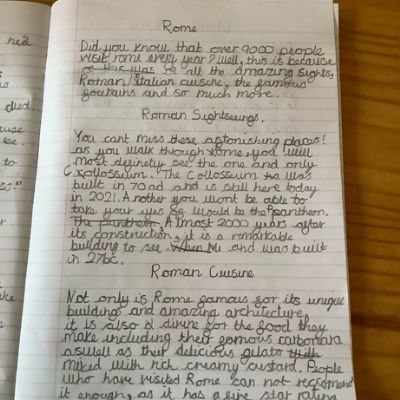 Rome
Did you know that over 9000 people
visit rome every year? well, this is because
of all the amazing sights,
Roman/italian cuisine, the famous
foutains and so much more.
Roman Sightseeings.
You cant miss these astonishing places!
as you walk through Rome, you will
most definetly see the one and only
Collosseum. The Collosseum was
built in 70ad and is still here today
in 2021. Another you wont be able to
take your eyes of would be the Pantheon.
The pantheon, Almost 2000 years after
its construction, it is a remarkable
building to see. and was built
in 27bc.
Roman Cuisine
Not only is Rome famous for its unique
buildings and amazing architecture,
it is also a divine for the food they
make including their famous carbonara
aswell as their delicious gelato
mixed with rich creamy custard. People
who have visited Rome can not recommend
it enough, as it has a five star rating
he'd
died.
to